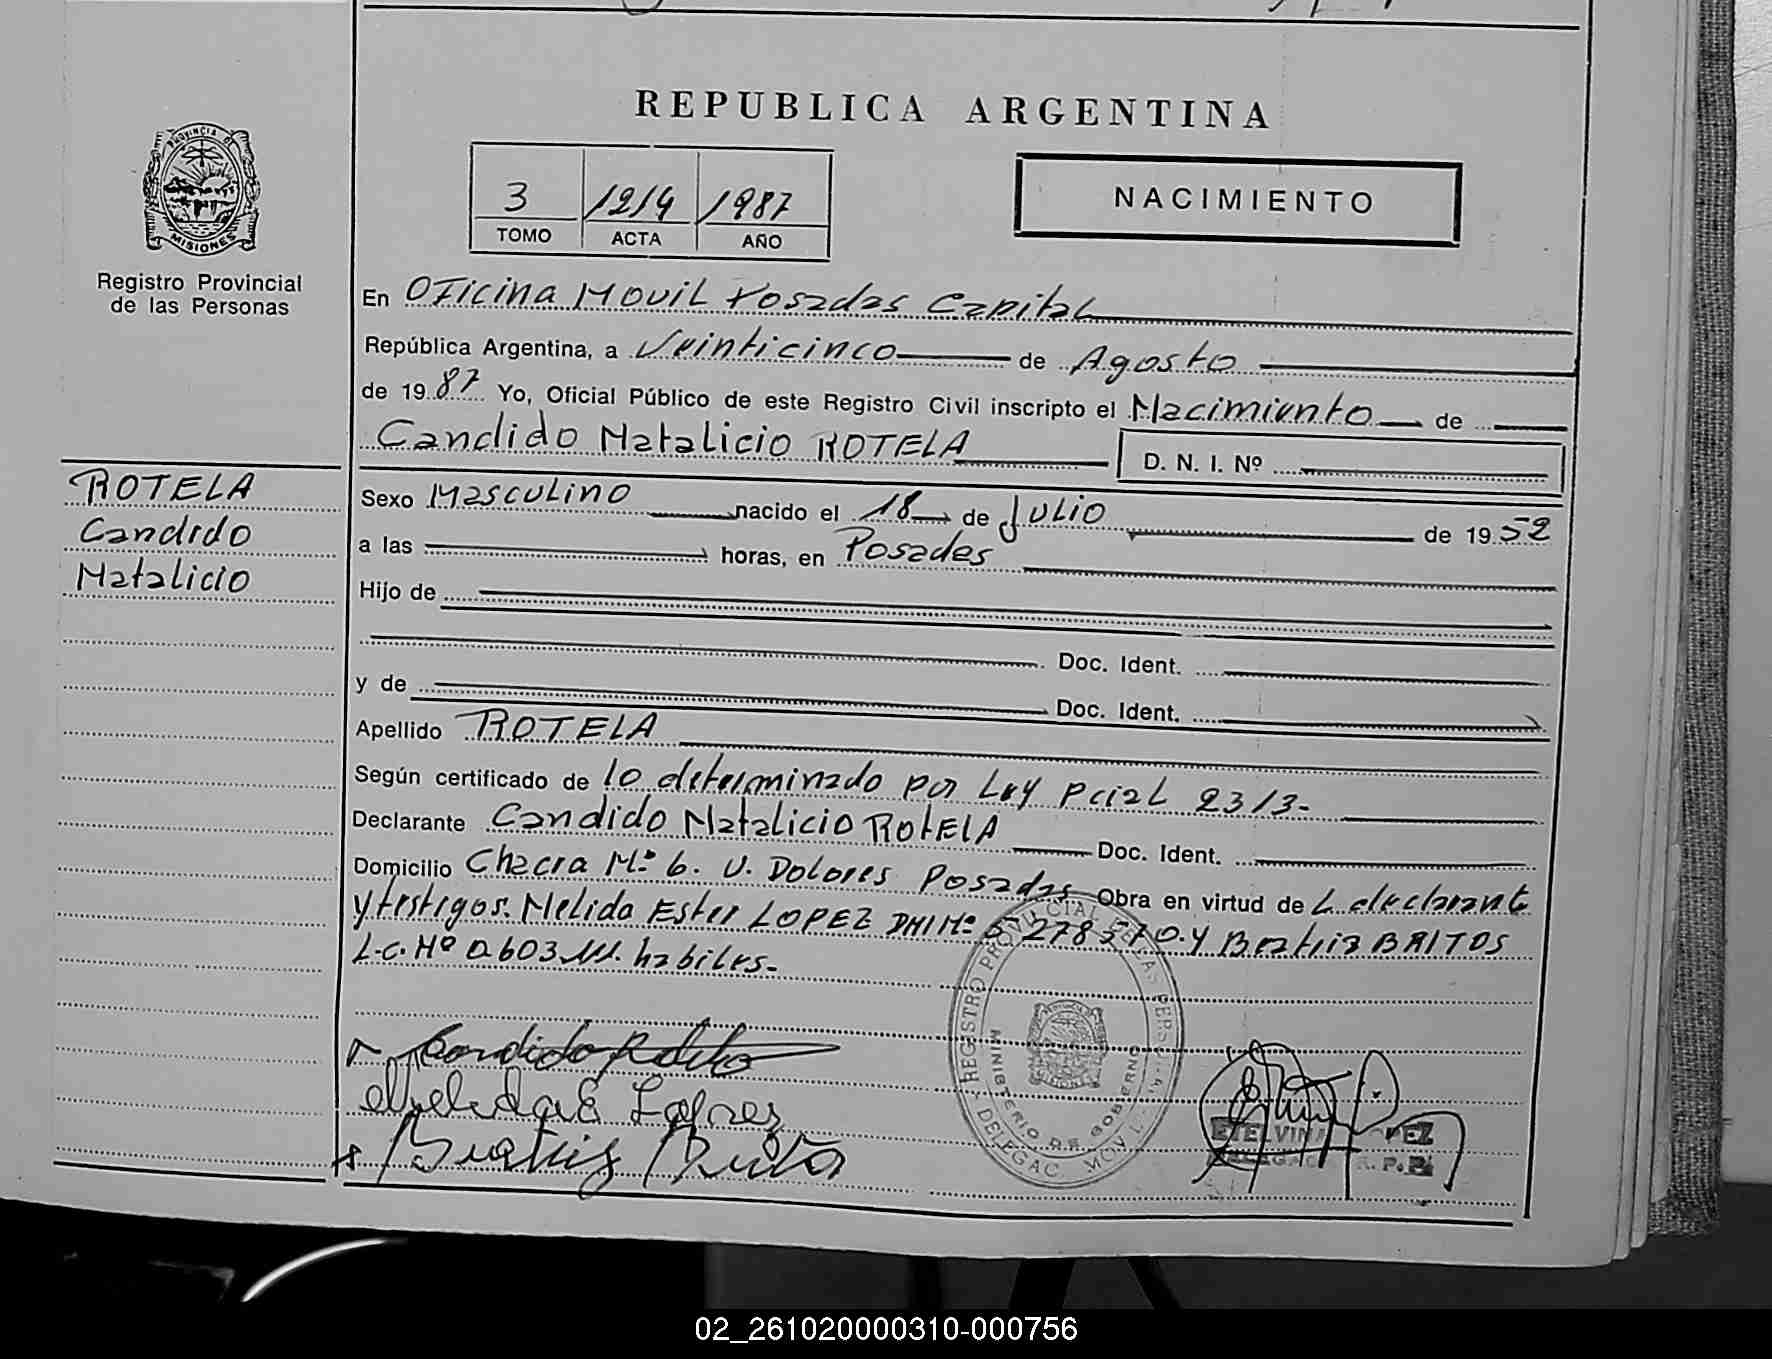 REPUBLICA ARGENTINA
PROVINCIA DE
MISIONES
Registro Provincial
de las Personas
3 1214 1987
TOMO ACTA AÑO
NACIMIENTO
En Oficina Movil Posadas Capital
República Argentina, a Veinticinco de Agosto
de 1987 Yo, Oficial Público de este Registro Civil inscripto el Nacimiento de
Candido Natalicio ROTELA D. N. I. Nº
ROTELA
Candido
Natalicio
Sexo Masculino nacido el 18 de Julio de 1952
a las horas, en Posadas
Hijo de
Doc. Ident.
y de
Doc. Ident.
Apellido ROTELA
Según certificado de lo determinado por Ley Pcial 2313-
Declarante Candido Natalicio ROTELA Doc. Ident.
Domicilio Chacra Nº 6. V. Dolores Posadas Obra en virtud de L declarante
y testigos. Nelida Ester LOPEZ DNI Nº 5.278.570. y Beatriz BRITOS
L.C. Nº 0.603. habiles.-
Candido Rotela
Nelida E Lopez
Beatriz Britos
REGISTRO PROVINCIAL DE LAS PERSONAS
MINISTERIO DE GOBERNO
DELEGAC. MOVIL
ETELVINA LOPEZ
02_261020000310-000756